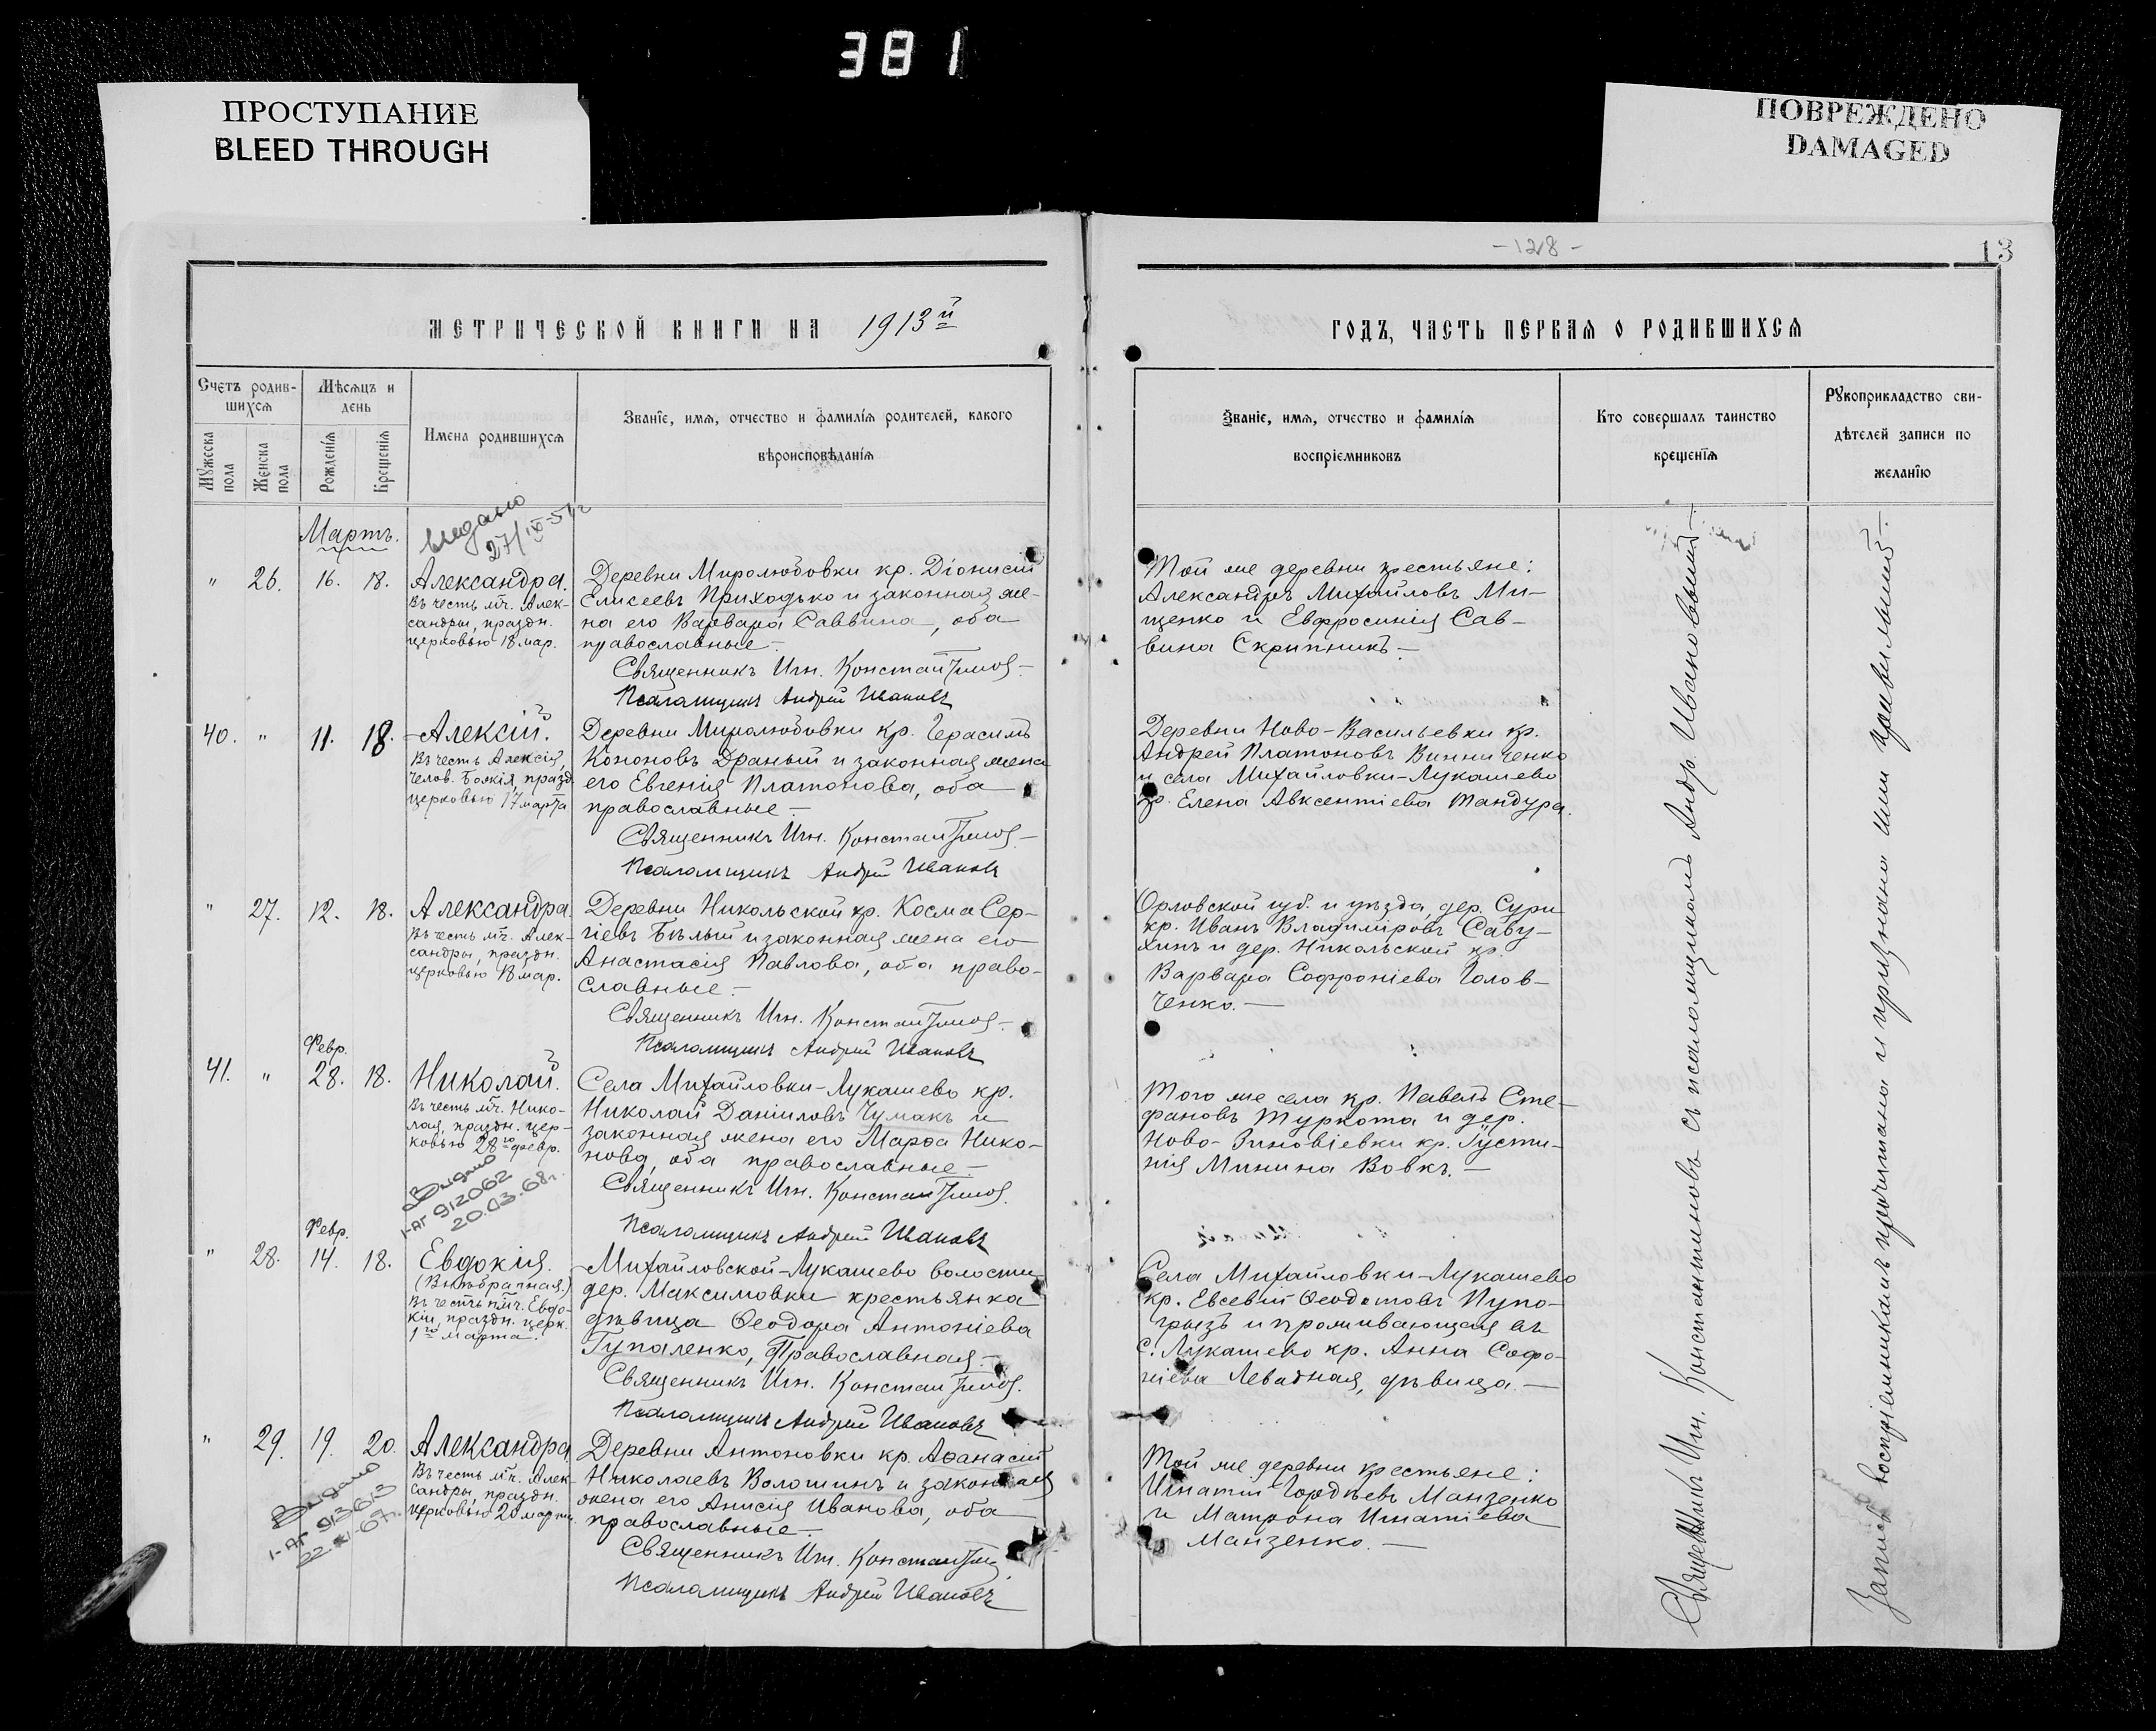 381
ПРОСТУПАНИЕ
BLEED THROUGH
ПОВРЕЖДЕНО
DAMAGED
-128-
13
МЕТРИЧЕСКОЙ КНИГИ НА 1913й
ГОДЪ, ЧАСТЬ ПЕРВАЯ О РОДИВШИХСЯ
Счетъ родив-
шихся
Мужеска
пола
Женска
пола
Мѣсяцъ и
день
Рожденія
Крещенія
Имена родившихся
Званіе, имя, отчество и фамилія родителей, какого
вѣроисповѣданія
Званіе, имя, отчество и фамилія
воспріемниковъ
Кто совершалъ таинство
крещенія
Рукоприкладство сви-
дѣтелей записи по
желанію
Мартъ.
выдано
27/IX-51г
" 26. 16. 18. Александра.
Въ честь мч. Алек-
сандры, праздн.
церковью 18 мар.
Деревни Миролюбовки кр. Діонисій
Елисеевъ Приходько и законная же-
на его Варвара Саввина, оба
православные.-
Священникъ Игн. Константиновъ.
Псаломщикъ Андрей Ивановъ
Той же деревни крестьяне:
Александръ Михайловъ Ми-
щенко и Евфросинія Сав-
вина Скрипникъ.-
40. " 11. 18. Алексій.
Въ честь Алексія,
челов. Божія, празд.
церковью 17 марта
Деревни Миролюбовки кр. Герасимъ
Кононовъ Драный и законная жена
его Евгенія Платонова, оба
православные.-
Священникъ Игн. Константиновъ.-
Псаломщикъ Андрей Ивановъ
Деревни Ново-Васильевки кр.
Андрей Платоновъ Винниченко
и села Михайловки-Лукашево
кр. Елена Авксентіева Тандура.
" 27. 12. 18. Александра.
Въ честь мч. Алек-
сандры, праздн.
церковью 18 мар.
Деревни Никольской кр. Косма Сер-
гіевъ Бѣлый и законная жена его
Анастасія Павлова, оба право-
славные.-
Священникъ Игн. Константиновъ.-
Псаломщикъ Андрей Ивановъ
Орловской губ. и уѣзда, дер. Сури
кр. Иванъ Владиміровъ Саву-
хинъ и дер. Никольской кр.
Варвара Софроніева Голов-
ченко.-
Февр.
41. " 28. 18. Николай.
Въ честь мч. Нико-
лая, праздн. цер-
ковью 28го февр.
Видано
I-АГ 912062
20.03.68г.
Села Михайловки-Лукашево кр.
Николай Даніиловъ Чумакъ и
законная жена его Марѳа Нико-
нова, оба православные.-
Священникъ Игн. Константиновъ.
Псаломщикъ Андрей Ивановъ
Того же села кр. Павелъ Сте-
фановъ Туркота и дер.
Ново-Зиновіевки кр. Густи-
нія Минина Вовкъ.-
Февр.
" 28. 14. 18. Евдокія.
(Внѣбрачная.)
Въ честь пмч. Евдо-
кіи, праздн. церк.
1го марта.
Михайловской-Лукашево волости
дер. Максимовки крестьянка
дѣвица Ѳеодора Антоніева
Гупаленко, Православная.-
Священникъ Игн. Константиновъ.
Псаломщикъ Андрей Ивановъ
Села Михайловки-Лукашево
кр. Евсевій Ѳеодотовъ Пупо-
грызъ и проживающая въ
с. Лукашево кр. Анна Софо-
ніева Левадная, дѣвица.-
" 29. 19. 20. Александра
Въ честь мч. Алек-
сандры, праздн.
церковью 20 марта.
Видано
I-АГ 913613
22-XI-67г.
Деревни Антоновки кр. Аѳанасій
Николаевъ Волошинъ и законная
жена его Анисія Иванова, оба
православные.-
Священникъ Игн. Константиновъ
Псаломщикъ Андрей Ивановъ
Той же деревни крестьяне:
Игнатій Гордѣевъ Манзенко
и Матрона Игнатіева
Манзенко.-
Священникъ Игн. Константиновъ съ псаломщикомъ Андр. Ивановымъ.-
Запись воспріемникамъ прочитана и признана ими правильной.-